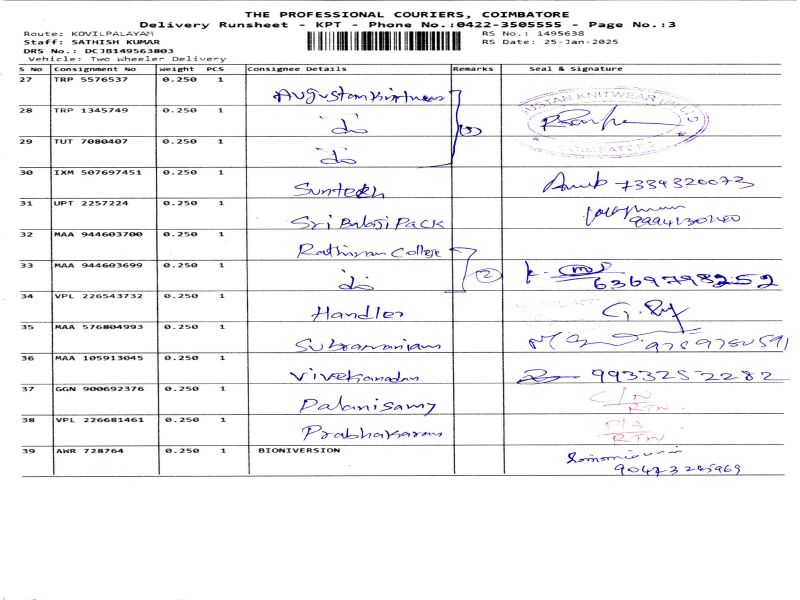 THE PROFESSIONAL COURIERS, COIMBATORE
Delivery Runsheet - KPT - Phone No.:0422-3505555 - Page No.:3
Route: KOVILPALAYAM RS No.: 1495638
Staff: SATHISH KUMAR RS Date: 25-Jan-2025
DRS No.: DCJB149563803
Vehicle: Two Wheeler Delivery
S No Consignment No Weight PCS Consignee Details Remarks Seal & Signature
27 TRP 5576537 0.250 1 Augustan Knitwear
28 TRP 1345749 0.250 1 do (3)
29 TUT 7080407 0.250 1 do
30 IXM 507697451 0.250 1 Suntech 7339320073
31 UPT 2257224 0.250 1 Sri Balaji Pack
32 MAA 944603700 0.250 1 Rathinam College
33 MAA 944603699 0.250 1 do (2) 6369798252
34 VPL 226543732 0.250 1 Handler
35 MAA 576804993 0.250 1 Subramaniam
36 MAA 105913045 0.250 1 Vivekanadan 9933252282
37 GGN 900692376 0.250 1 Palanisamy C/N RTN
38 VPL 226681461 0.250 1 Prabhakaran RTN
39 AWR 728764 0.250 1 BIONIVERSION
90473245969